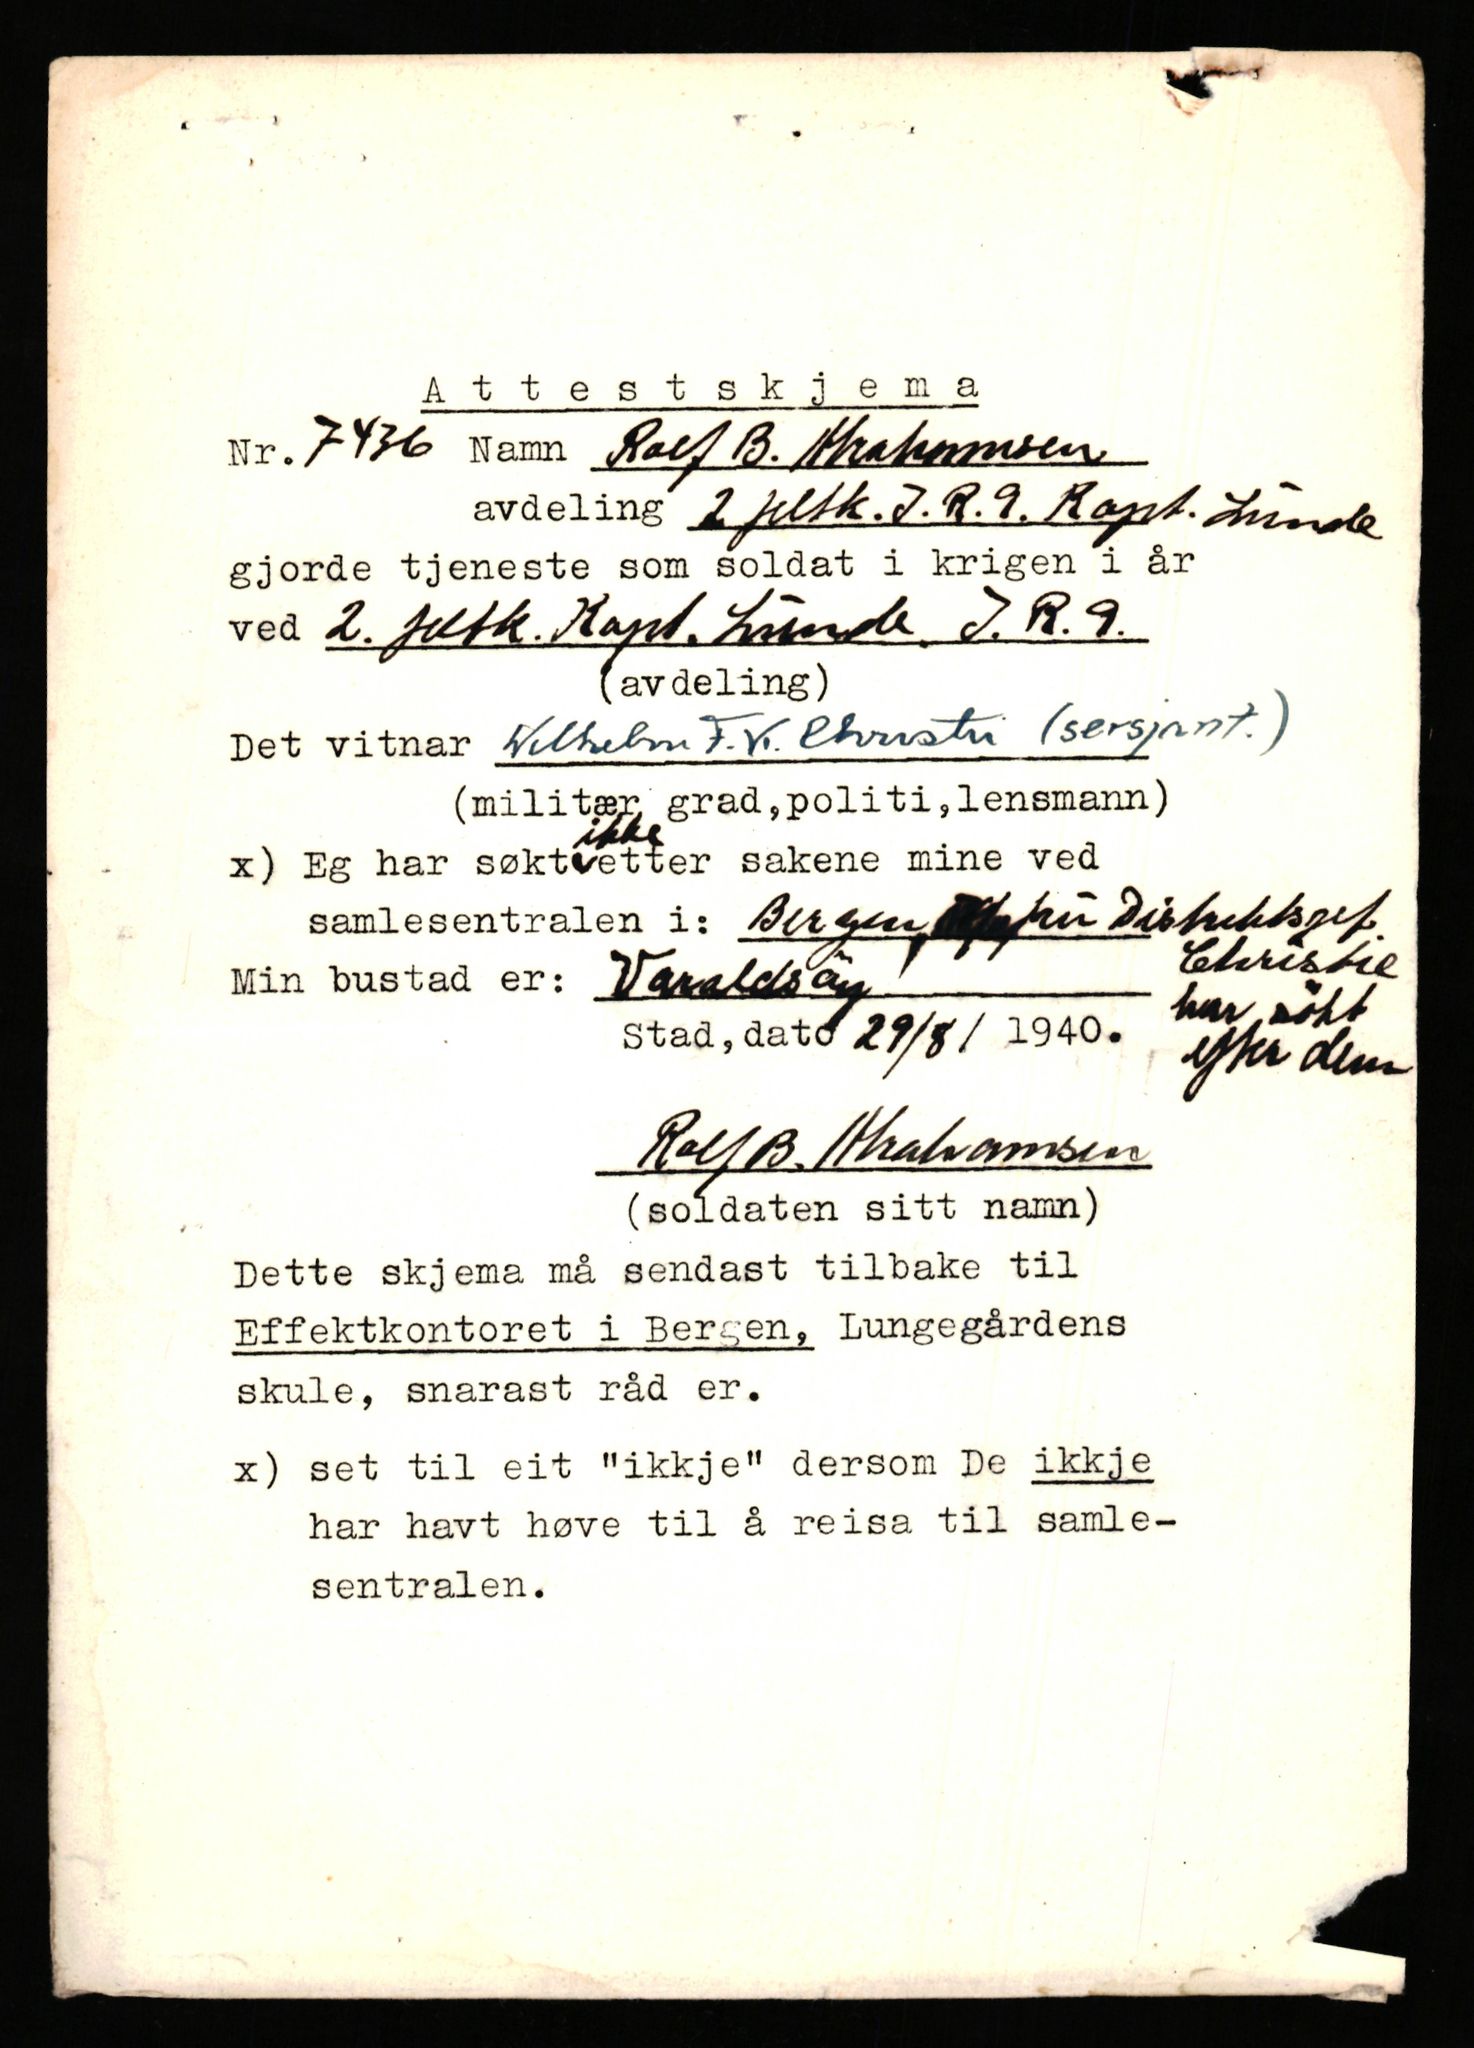 Attestskjema
Nr. 7436 Namn Rolf B. Abrahamsen
avdeling 2 feltk. I.R.9. Kapt. Lunde
gjorde tjeneste som soldat i krigen i år
ved 2. feltk. Kapt. Lunde I.R.9.
(avdeling)
Det vitnar Wilhelm F.K. Christie (sersjant.)
(militær grad,politi,lensmann)
ikke
x) Eg har søkt etter sakene mine ved
samlesentralen i: Bergen, Distriktsgef.
Christie
har søkt
efter dem
Min bustad er: Varaldsöy
Stad,dato 29/8/ 1940.
Rolf B. Abrahamsen
(soldaten sitt namn)
Dette skjema må sendast tilbake til
Effektkontoret i Bergen, Lungegårdens
skule, snarast råd er.
x) set til eit "ikkje" dersom De ikkje
har havt høve til å reisa til samle-
sentralen.